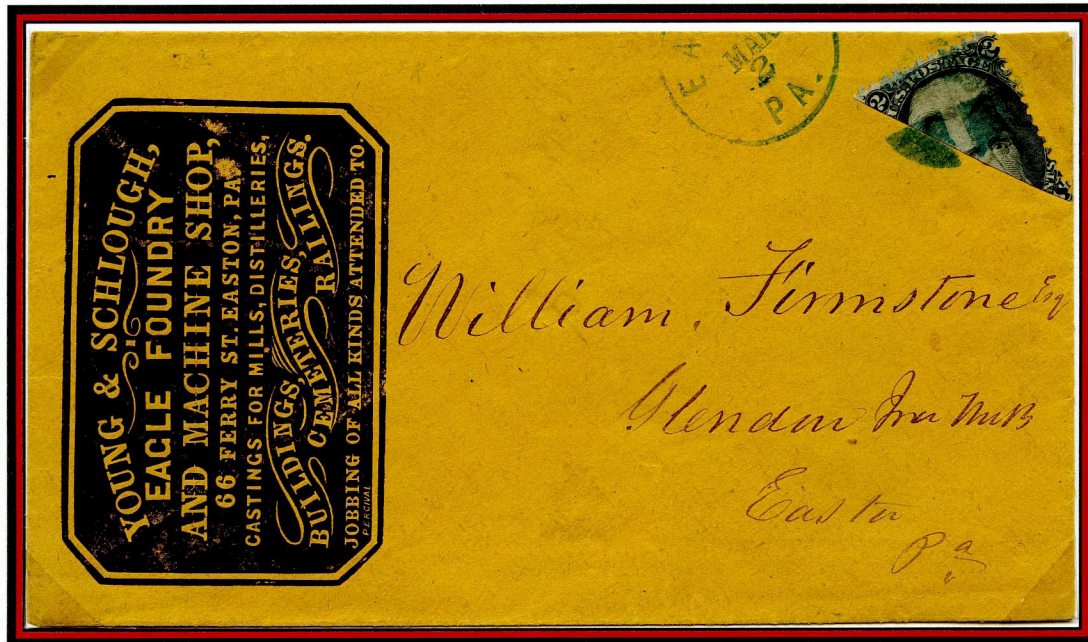 YOUNG & SCHLOUGH,
EAGLE FOUNDRY
AND MACHINE SHOP,
66 FERRY ST. EASTON, PA.
CASTINGS FOR MILLS, DISTILLERIES,
BUILDINGS, CEMETERIES, RAILINGS.
JOBBING OF ALL KINDS ATTENDED TO.
PERCIVAL
MAR
2
PA.
2
U.S. POSTAGE
William. Firmstone Esq
Glendon Iron
Easton
Pa